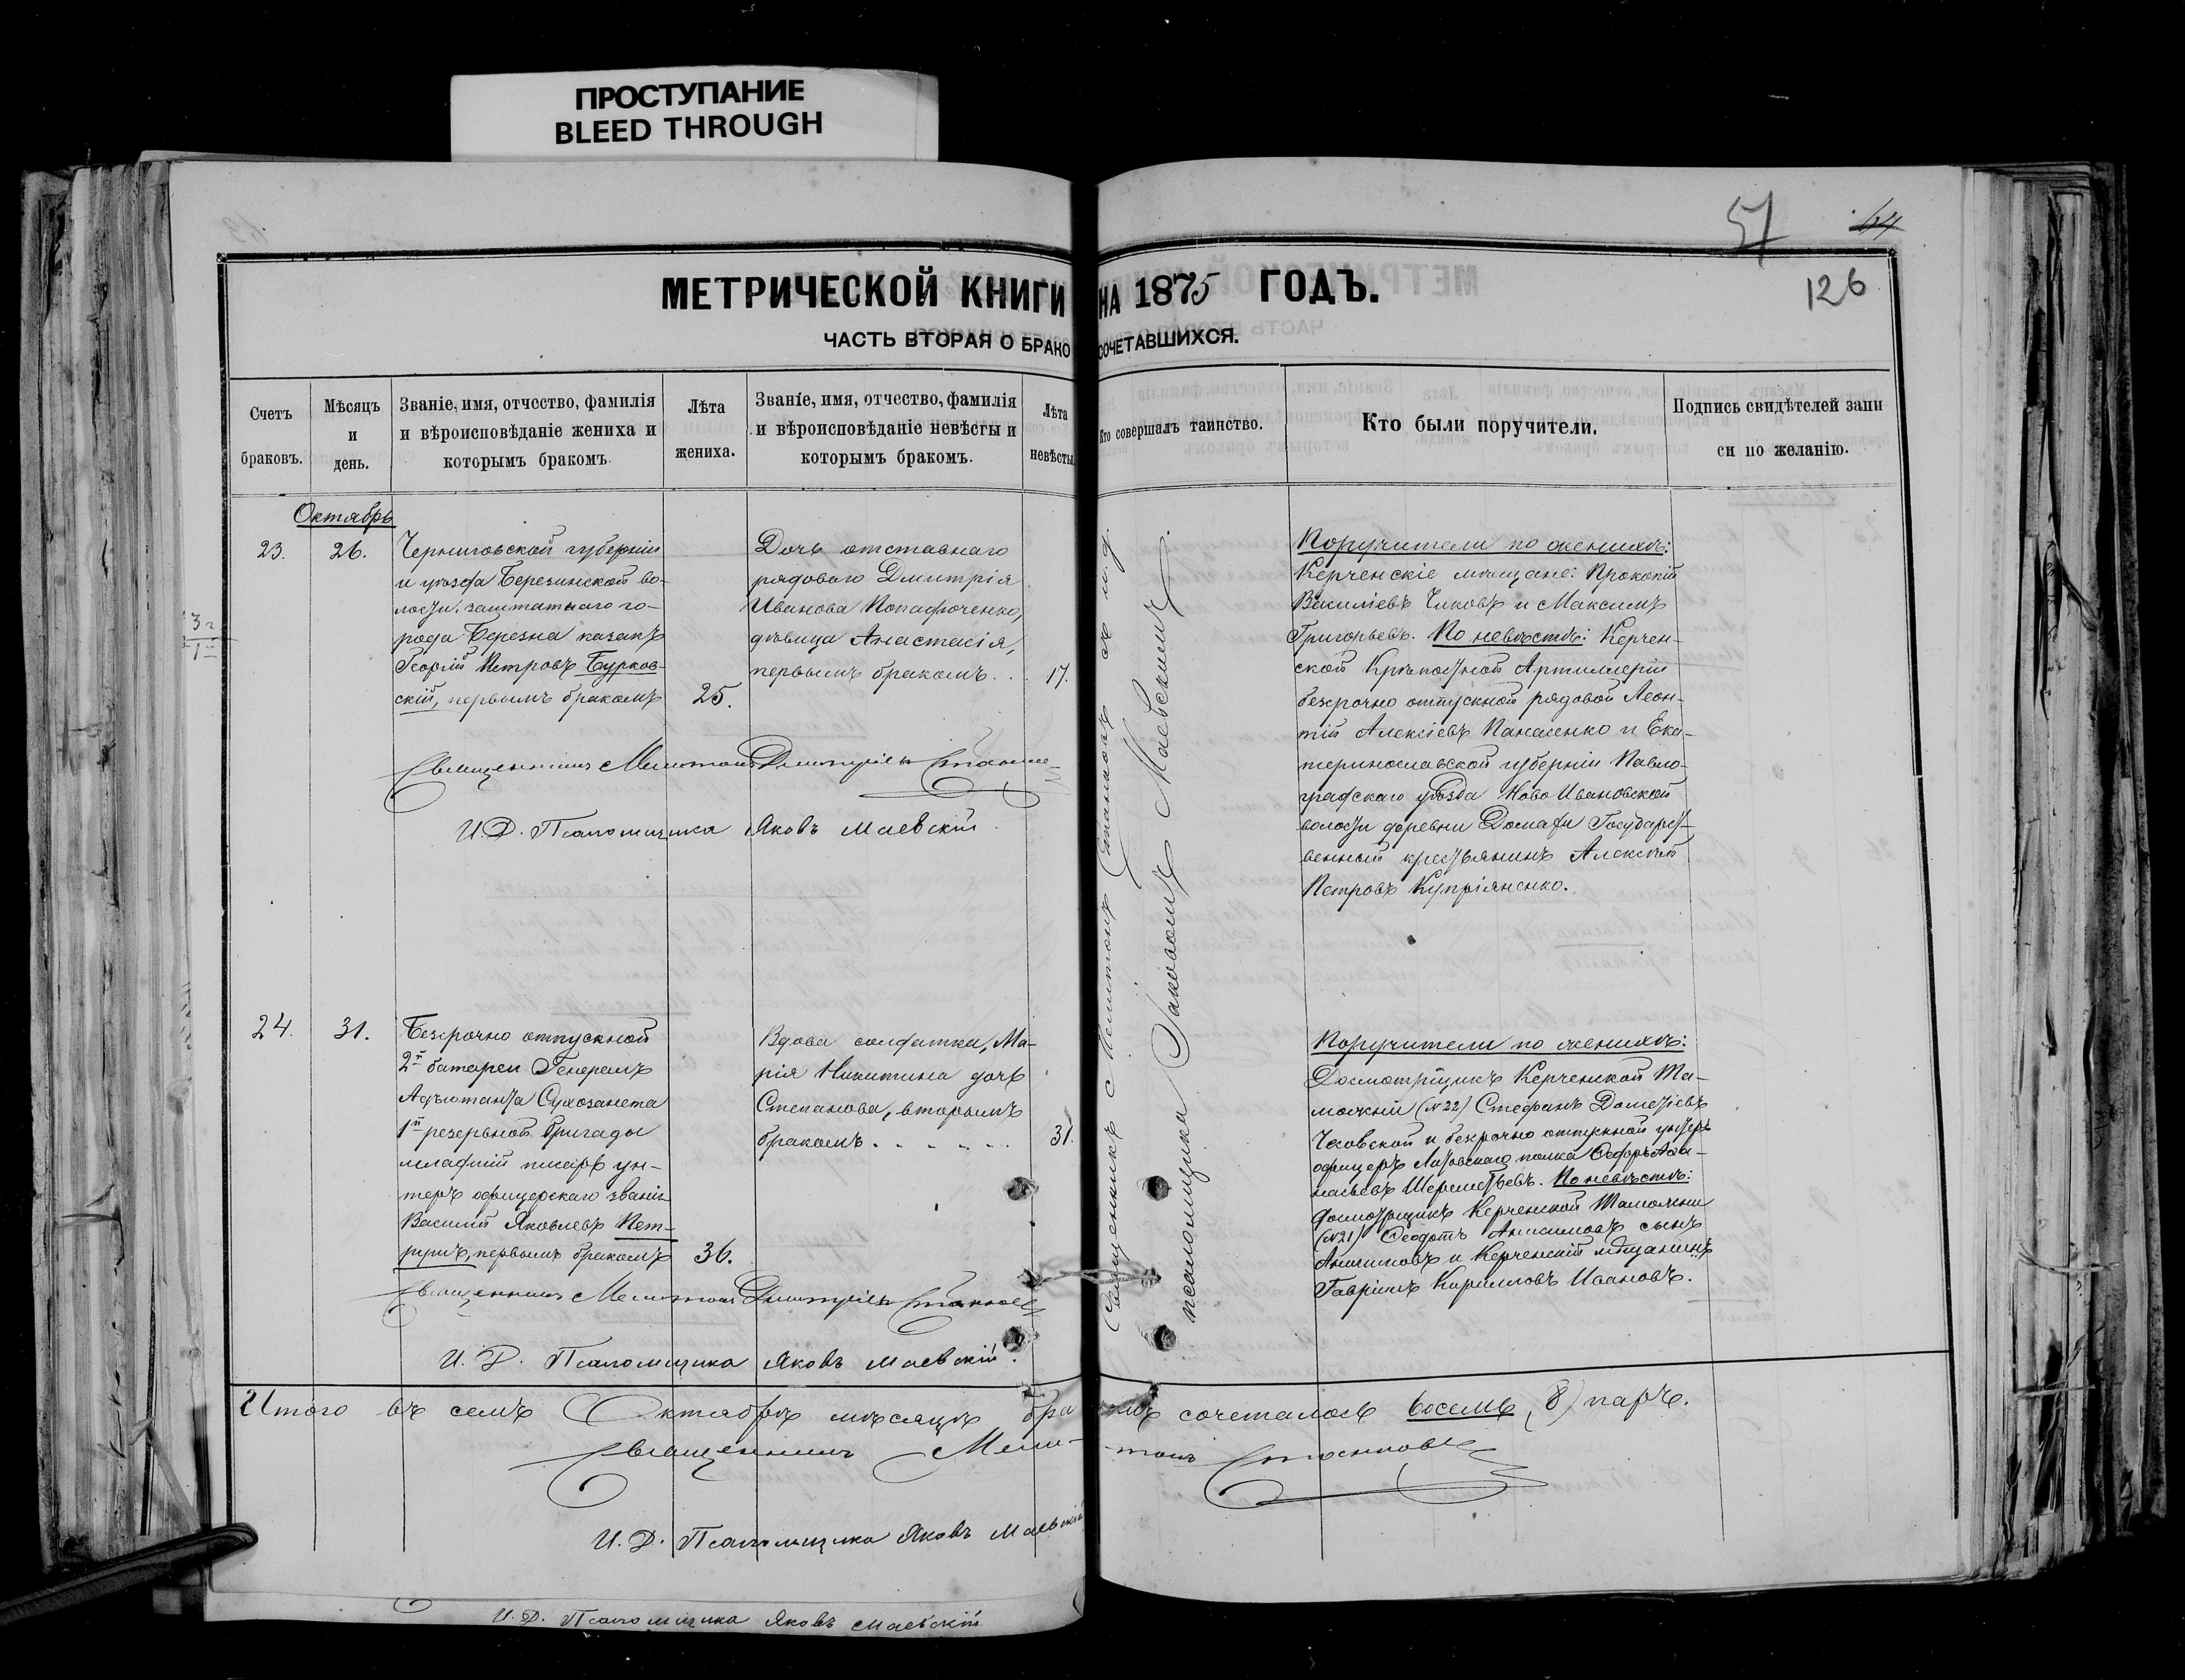 ПРОСТУПАНИЕ
BLEED THROUGH
51
64
126
МЕТРИЧЕСКОЙ КНИГИ НА 1875 ГОДЪ.
ЧАСТЬ ВТОРАЯ О БРАКОСОЧЕТАВШИХСЯ.
Счетъ
браковъ.
Мѣсяцъ
и
день.
Званіе, имя, отчество, фамилія
и вѣроисповѣданіе жениха и
которымъ бракомъ.
Лѣта
жениха.
Званіе, имя, отчество, фамилія
и вѣроисповѣданіе невѣсты и
которымъ бракомъ.
Лѣта
невѣсты.
Кто совершалъ таинство.
Кто были поручители.
Подпись свидѣтелей запи
си по желанію.
Октябрь
23.
26.
Черниговской губерніи
и уѣзда Березинской во-
лости, заштатнаго го-
рода Березна казакъ
Георгій Петровъ Бурков-
скій, первымъ бракомъ
25.
Дочь отставнаго
рядоваго Дмитрія
Иванова
дѣвица Анастасія,
первымъ бракомъ . .
17.
Священникъ Мелитонъ
Поручители по женихѣ:
Керченскіе мѣщане: Прокопій
Василіевъ Чиковъ и Максимъ
Григорьевъ. По невѣстѣ: Керчен-
ской Крѣпостной Артиллеріи
безсрочно отпускной рядовой Леон-
тій Алексіевъ Панасенко и Ека-
теринославской губерніи Павло-
градскаго уѣзда Ново Ивановской
волости деревни Государст-
венный крестьянинъ Алексѣй
Петровъ Купріяненко.
И. Д. Псаломщика Яковъ Маевскій.
24.
31.
Безсрочно отпускной
2й батареи Генералъ
Адъютанта Сухозанета
1й резервной бригады
младшій писарь ун-
теръ офицерскаго званія
Василій Яковлевъ Пет-
первымъ бракомъ
36.
Вдова солдатка, Ма-
рія Никитина дочь
Степанова, вторымъ
бракомъ . . . . . .
31.
Священникъ Мелитонъ
И. Д. Псаломщика Яковъ Маевскій.
Священникъ Мелитонъ
псаломщика Іаковъ Маевскій
Поручители по женихѣ:
Досмотрщикъ Керченской Та-
можни (№22) Стефанъ Дометіевъ
и безсрочно отпускной унтеръ
офицеръ Литовскаго полка Ѳедоръ Аѳа-
насьевъ Шереметьевъ. По невѣстѣ:
досмотрщикъ Керченской Таможни
(№21) Ѳеодотъ сынъ
и Керченскій мѣщанинъ
Гавріилъ Кирилловъ Ивановъ.
Итого въ семъ Октябрѣ мѣсяцѣ бракомъ сочеталось восемь (8) паръ.
Священникъ Мелитонъ
И. Д. Псаломщика Яковъ Маевскій
И. Д. Псаломщика Яковъ Маевскій